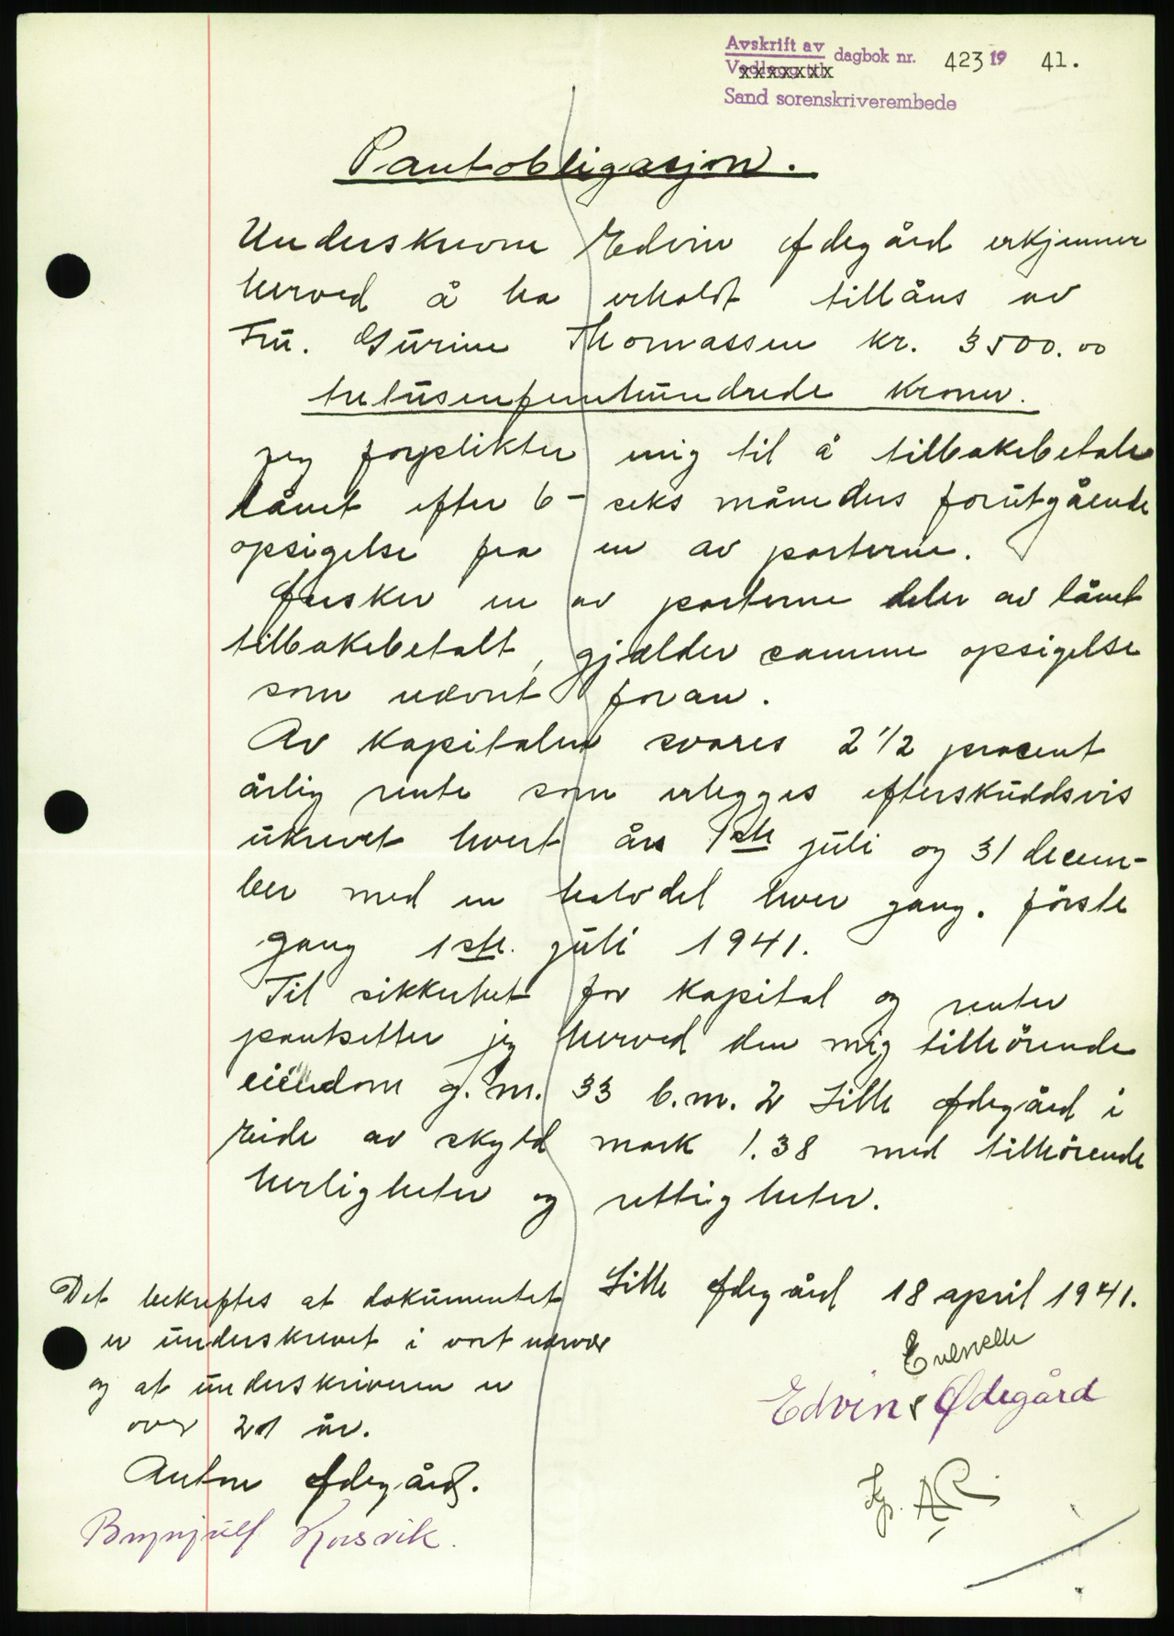 Avskrift av dagbok nr. 423 19 41.
Vedlegg til xxxxxxx
Sand sorenskriverembede
Pantobligasjon.
Underskrevne Edvin Ødegård erkjenner
herved å ha erholdt tillåns av
Fru. Gurine Thomassen kr. 3500.00
tretusenfemhundrede kroner.
Jeg forplikter mig til å tilbakebetale
lånet efter 6 - seks måneders forutgående
opsigelse fra en av parterne.
Ønsker en av parterne deler av lånet
tilbakebetalt, gjælder samme opsigelse
som nævnt foran.
Av kapitalen svares 2 1/2 procent
årlig rente som erlegges efterskuddsvis
ukrevet hvert års 1ste juli og 31 decem-
ber med en halvdel hver gang. første
gang 1ste. juli 1941.
Til sikkerhet for kapital og renter
pantsetter jeg herved den mig tilhörende
eiendom g.nr. 33 b.nr. 2 Lille Ødegård i
Eide av skyld mark 1.38 med tilhörende
herligheter og rettigheter.
Lille Ødegård 18 april 1941.
Edvin Evensen Ødegård
Det bekreftes at dokumentet
er underskrevet i vort nærvær
og at underskriveren er
over 21 år.
Anton Ødegård.
Brynjulf Korsvik.